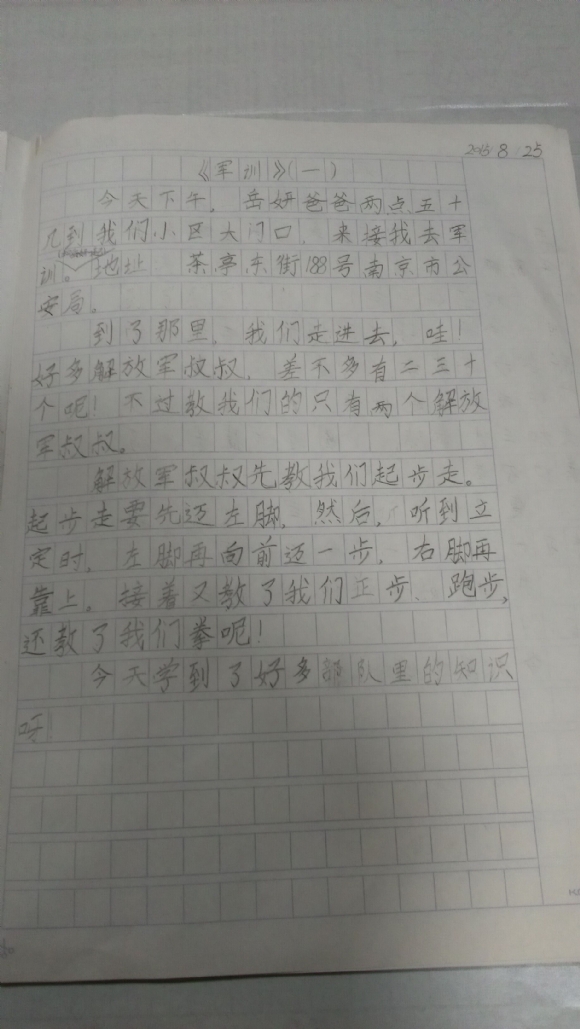 2015 8 25
《军训》(一)
今天下午，岳妍爸爸两点五十
几到我们小区大门口，来接我去军
训。地址 茶亭东街188号南京市公
安局。
到了那里，我们走进去，哇！
好多解放军叔叔，差不多有二三十
个呢！不过教我们的只有两个解放
军叔叔。
解放军叔叔先教我们起步走。
起步走要先迈左脚，然后，听到立
定时，左脚再向前迈一步，右脚再
靠上。接着又教了我们正步、跑步，
还教了我们拳呢！
今天学到了好多部队里的知识
呀！